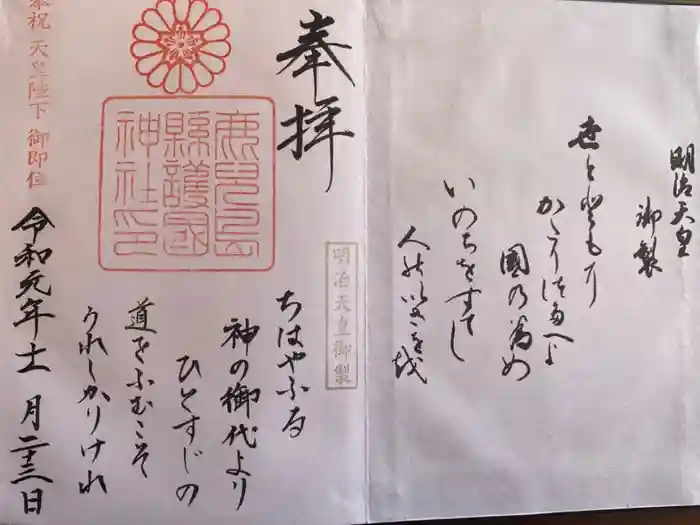 明治天皇
御製
世とともに
かたりつたへよ
國の為め
いのちをすてし
人のいさをを
奉拝
鹿児島
縣護國
神社印
明治天皇御製
ちはやふる
神の御代より
ひとすじの
道をふむこそ
うれしかりけれ
令和元年十一月二十三日
奉祝 天皇陛下 御即位